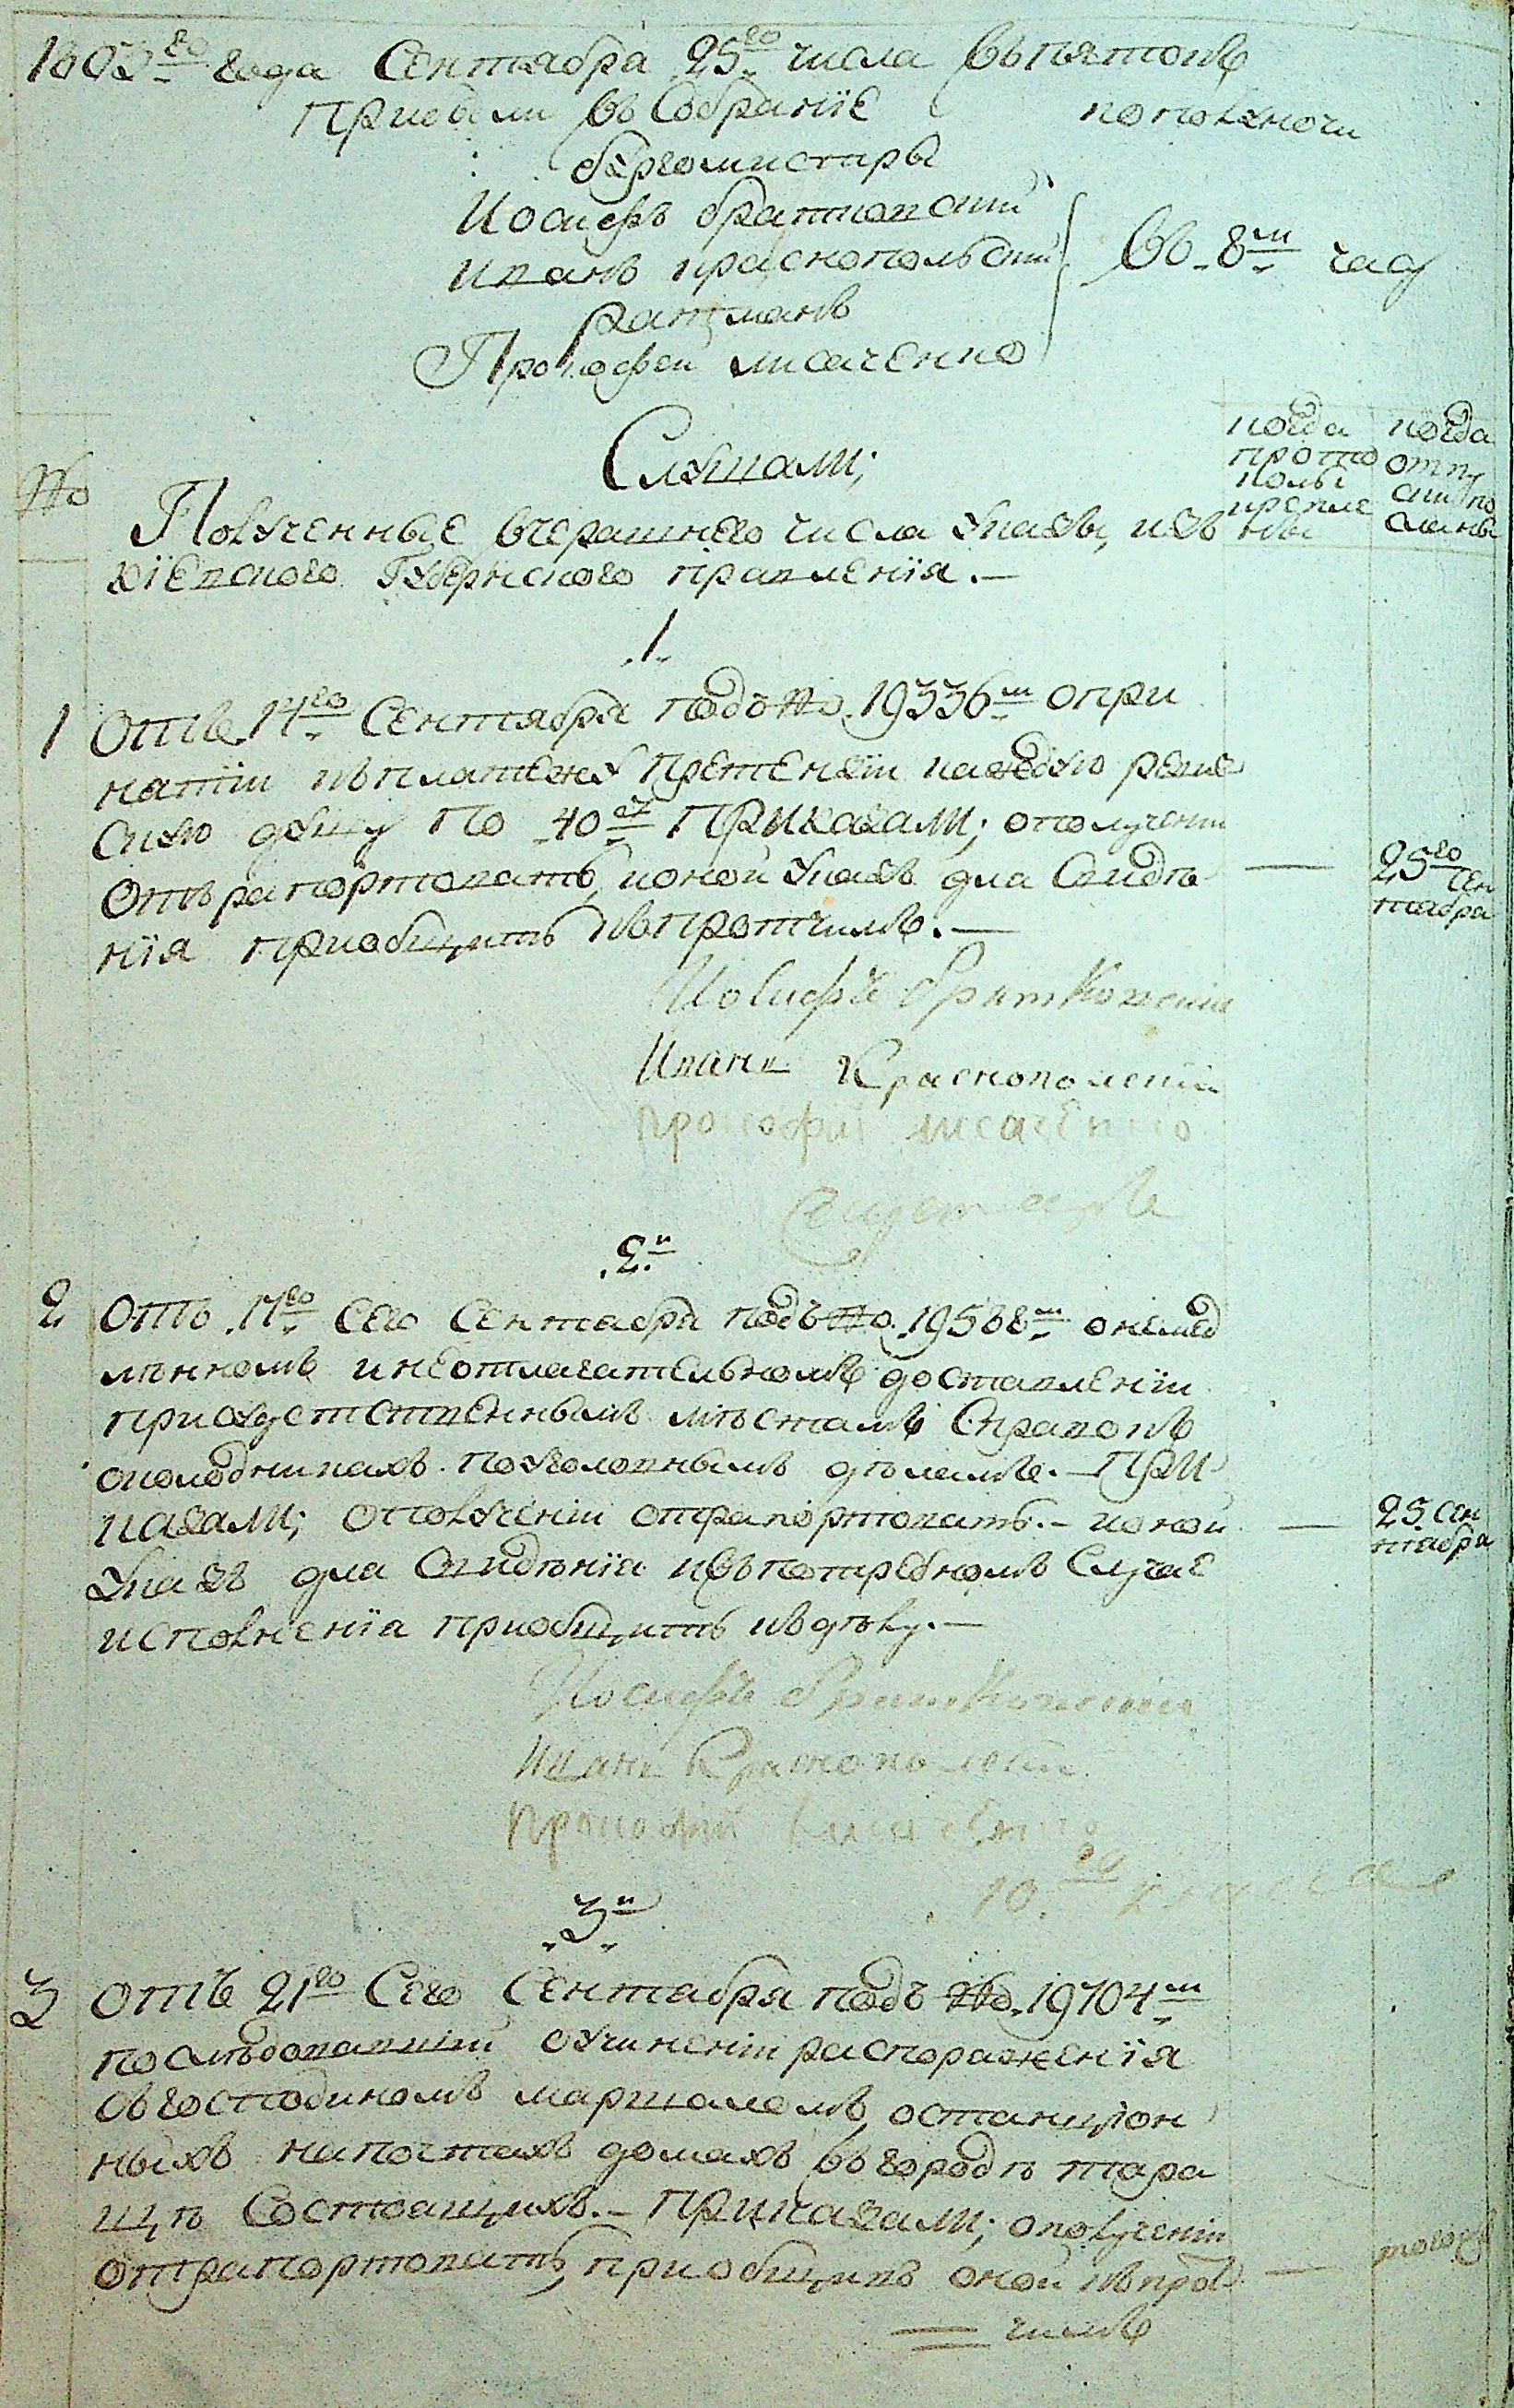 1803го года Сентября 25го числа въ пятокъ
Прибыли въ Собраніе пополуночи
бургомистры
Иосифъ братковский
Иванъ краснопольский въ 8м часу
ратманъ
Прокофей лисаченко
Слушали;
когда протоколы крепле ны
когда отпуски посланы
No
Полученные вчерашнего числа указы, изъ
киевского Губернского правления.—
1
1 Отъ 14го Сентября подъ No 19336м о при
нятіи къ платежу претензіи каждую ревиз
скую душу по 40 ПРИКАЗАЛИ; о получении
отрапортовать, и оной указъ для свидѣ
нія приобщить къ протчимъ.—
25го Сен
тября
Иосифъ братковский
Иванъ Краснополский
Прокофий лисаченко
2и
2 Отъ 17го сего Сентября подъ No 19588м о немед
лѣнномъ и неотлагателномъ доставленіи
присудственнымъ мѣстамъ справокъ
о колодникахъ по уголовнымъ дѣламъ.— ПРИ
КАЗАЛИ; о полученіи отрапортовать.— и оной
указъ для свидѣнія и въ потребномъ случае
исполненія приобщить къ дѣлу.—
25 Сен
тября
Иосифъ братковский
Иванъ Краснополский
Прокофий лисаченко
3и
3 отъ 21го Сего Сентября подъ No 19704м
последовавший о учиненіи распоряженія
съ господиномъ маршаломъ о станціон
ныхъ на почтахъ домахъ въ городѣ тара
щѣ состоящихъ.— ПРИКАЗАЛИ; о полученіи
отрапортовать, приобщивъ оной къ прот
чимъ